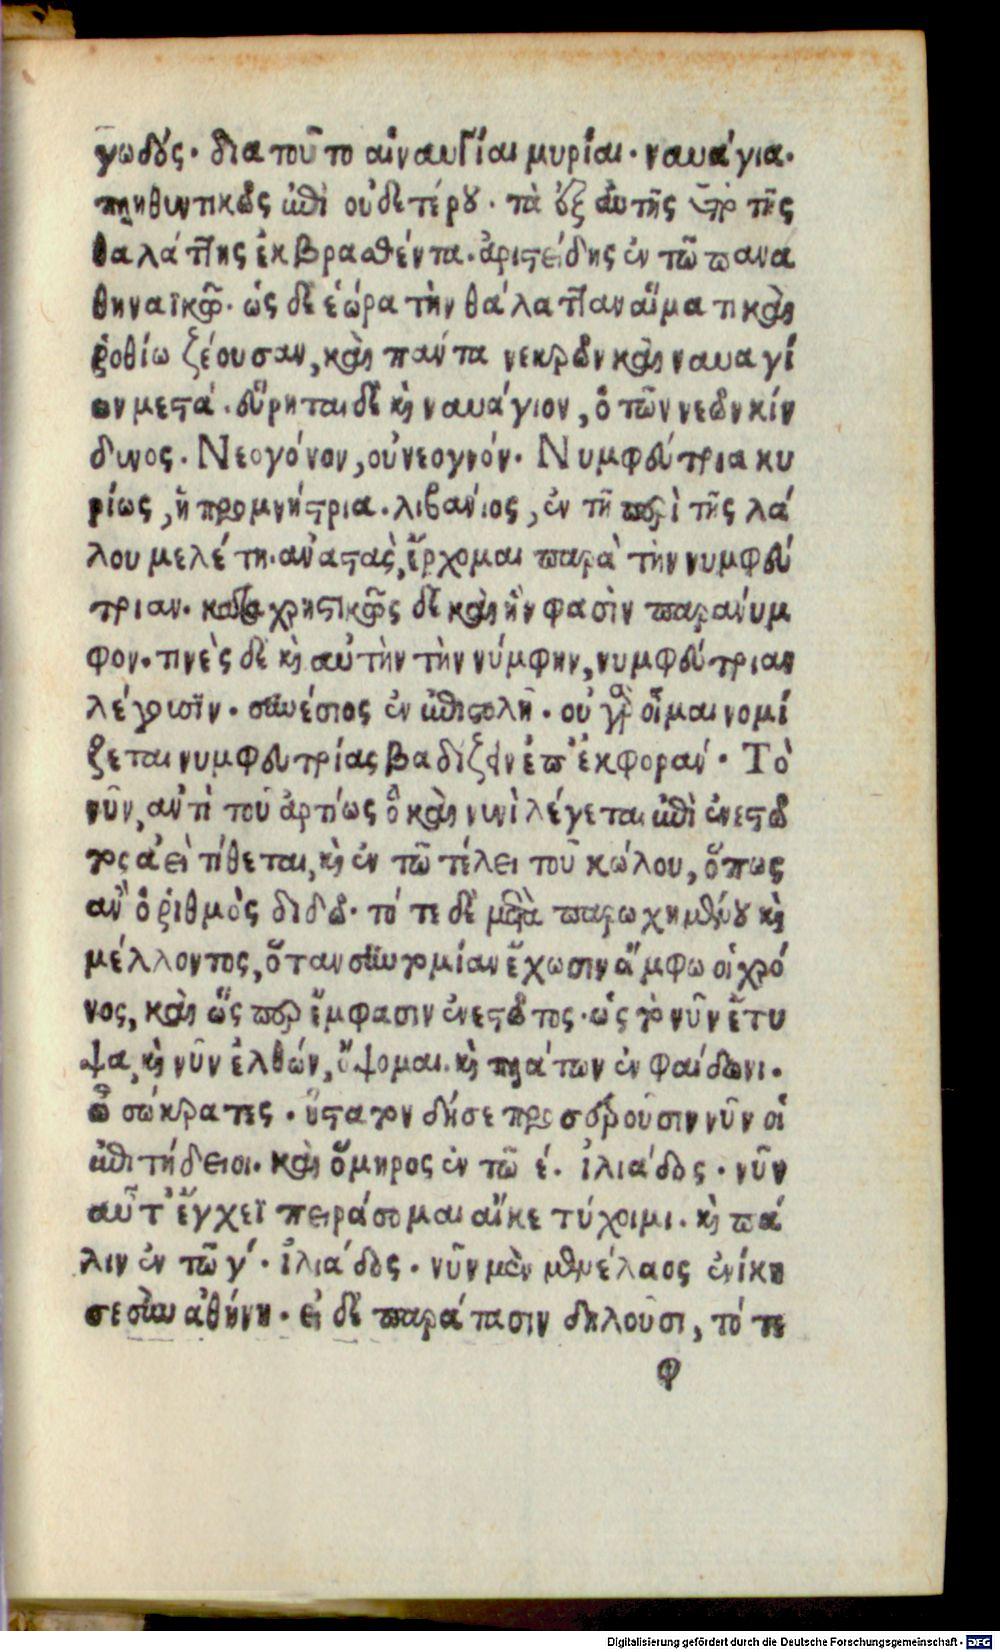 γωδούς. διατοῦτο αἱ ναυτίαι μυρίαι. ναυάγια.
πληθυντικῶς ἐπὶ οὐδετέρου. τὰ ἐξ αὐτῆς ὑπὸ τῆς
θαλάττης ἐκβρασθέντα. ἀριστείδης ἐν τῶ πανα
θηναϊκῶ. ὡς δὲ ἑώρα τὴν θάλατταν αἵματι καὶ
ῥοθίω ζέουσαν, καὶ πάντα νεκρῶν καὶ ναυαγί
ων μεστά. εὕρηται δὲ καὶ ναυάγιον, ὁ τῶν νεῶν κίν
δυνος. Νεογόνον, οὐ νεογνόν. Νυμφεύτρια κυ
ρίως, ἡ προμνήστρια. λιβάνιος, ἐν τῆ περὶ τῆς λά
λου μελέτη. ἀναστὰς, ἔρχομαι παρὰ τὴν νυμφεύ
τριαν. καταχρηστικῶς δὲ καὶ ἣν φασὶν παράνυμ
φον. τινὲς δὲ καὶ αὐτὴν τὴν νύμφην, νυμφεύτριαν
λέγουσϊν. συνέσιος ἐν ἐπιστολῆ. οὐ γὰρ οἶμαι νομί
ζεται νυμφευτρίας βαδίζειν ἐπ' ἐκφοράν. Τὸ
νῦν, ἀντὶ τοῦ ἀρτίως ὃ καὶ νυνὶ λέγεται ἐπὶ ἐνεστῶ
τος ἀεὶ τίθεται, καὶ ἐν τῶ τέλει τοῦ κώλου, ὅπως
ἂν ὁ ῥιθμὸς διδῶ. τότε δὲ μετὰ παρωχημένου καὶ
μέλλοντος, ὅταν συντομίαν ἔχωσιν ἄμφω οἱ χρό
νοι, καὶ ὥσπερ ἔμφασιν ἐνεστῶτος. ὡς τὸ νῦν ἔτυ
ψα, καὶ νῦν ἐλθών, ὄψομαι. καὶ πλάτων ἐν φαίδωνι.
ὦ σώκρατες. ὕστατον δή σε προσεροῦσιν νῦν οἱ
ἐπιτήδειοι. καὶ ὅμηρος ἐν τῶ έ. ἰλιάδος. νῦν
αὖτ' ἔγχεϊ πειράσομαι αἴκε τύχοιμι. καὶ πά
λιν ἐν τῶ γ'. ἰλιάδος. νῦν μὲν μενέλαος ἐνίκη
σε σὺν ἀθήνη. εἰ δὲ παράτασιν δηλοῦσι, τότε
φ
Digitalisierung gefördert durch die Deutsche Forschungsgemeinschaft - DFG